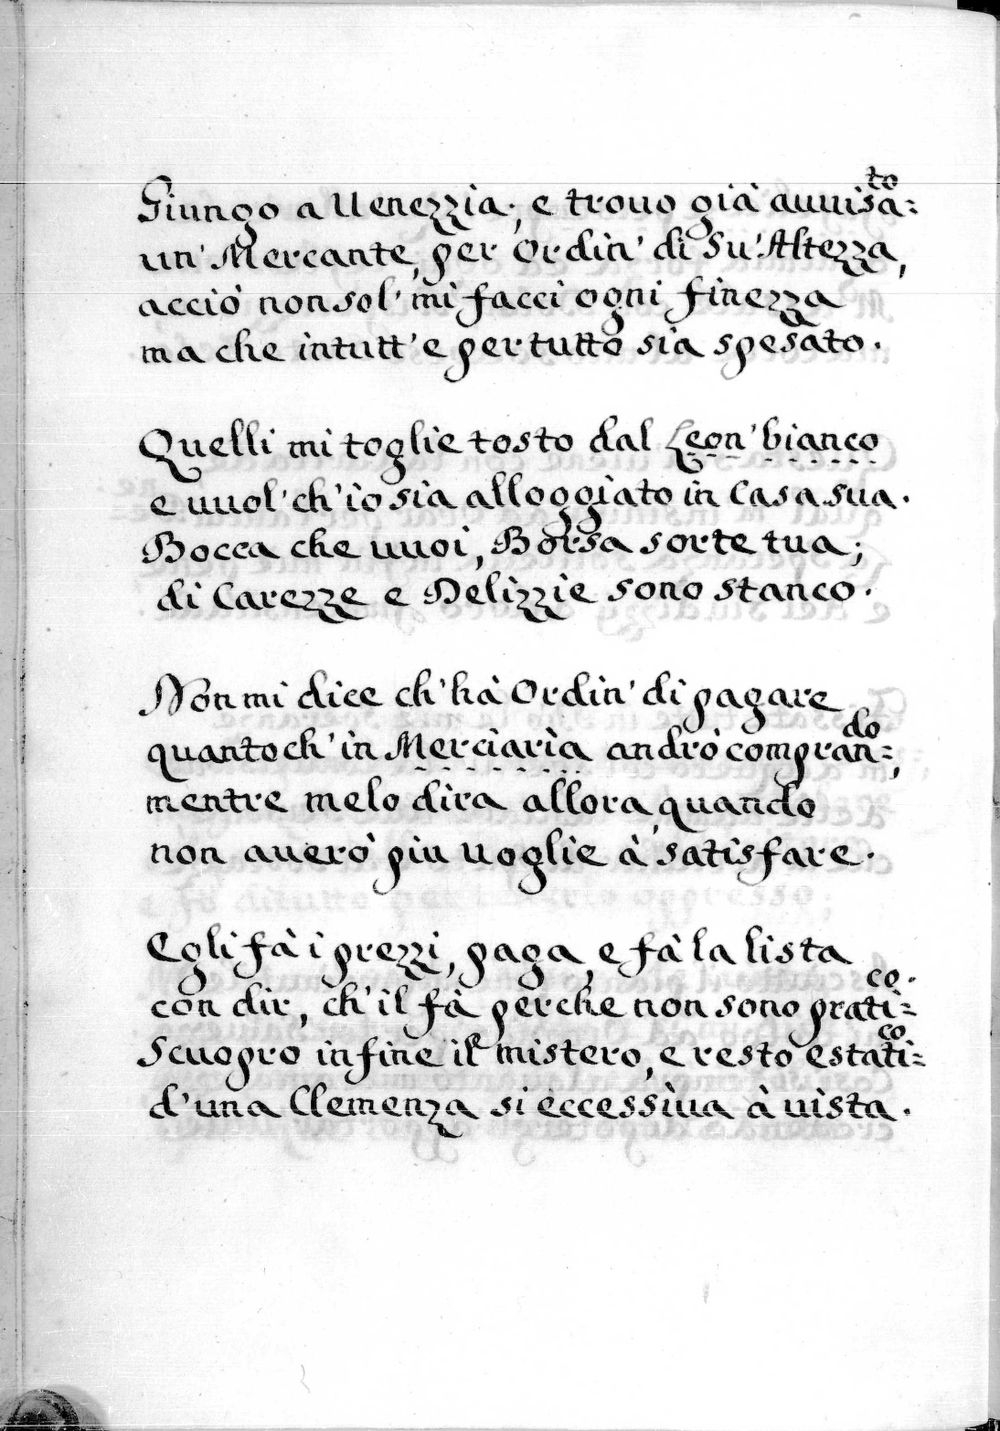 Giungo a Uenezzia, e trouo già auuisa=to
un' Mercante, per Ordin' di Su' Altezza,
acciò non sol' mi facci ogni finezza
ma che in tutt' e per tutto sia spesato.
Quelli mi toglie tosto dal Leon' bianco
e uuol' ch' io sia alloggiato in Casa sua.
Bocca che uuoi, Borsa sorte tua;
di Carezze e Delizzie sono stanco.
Non mi dice ch' hà Ordin' di pagare
quanto ch' in Merciaria andrò compran=do,
mentre me lo dira allora, quando
non auerò piu uoglie à satisfare.
Egli fà i prezzi, paga, e fà la lista
con dir, ch' il fà perche non sono prati=co.
Scuopro in fine il mistero, e resto estati=co
d' una Clemenza si eccessiua à uista.